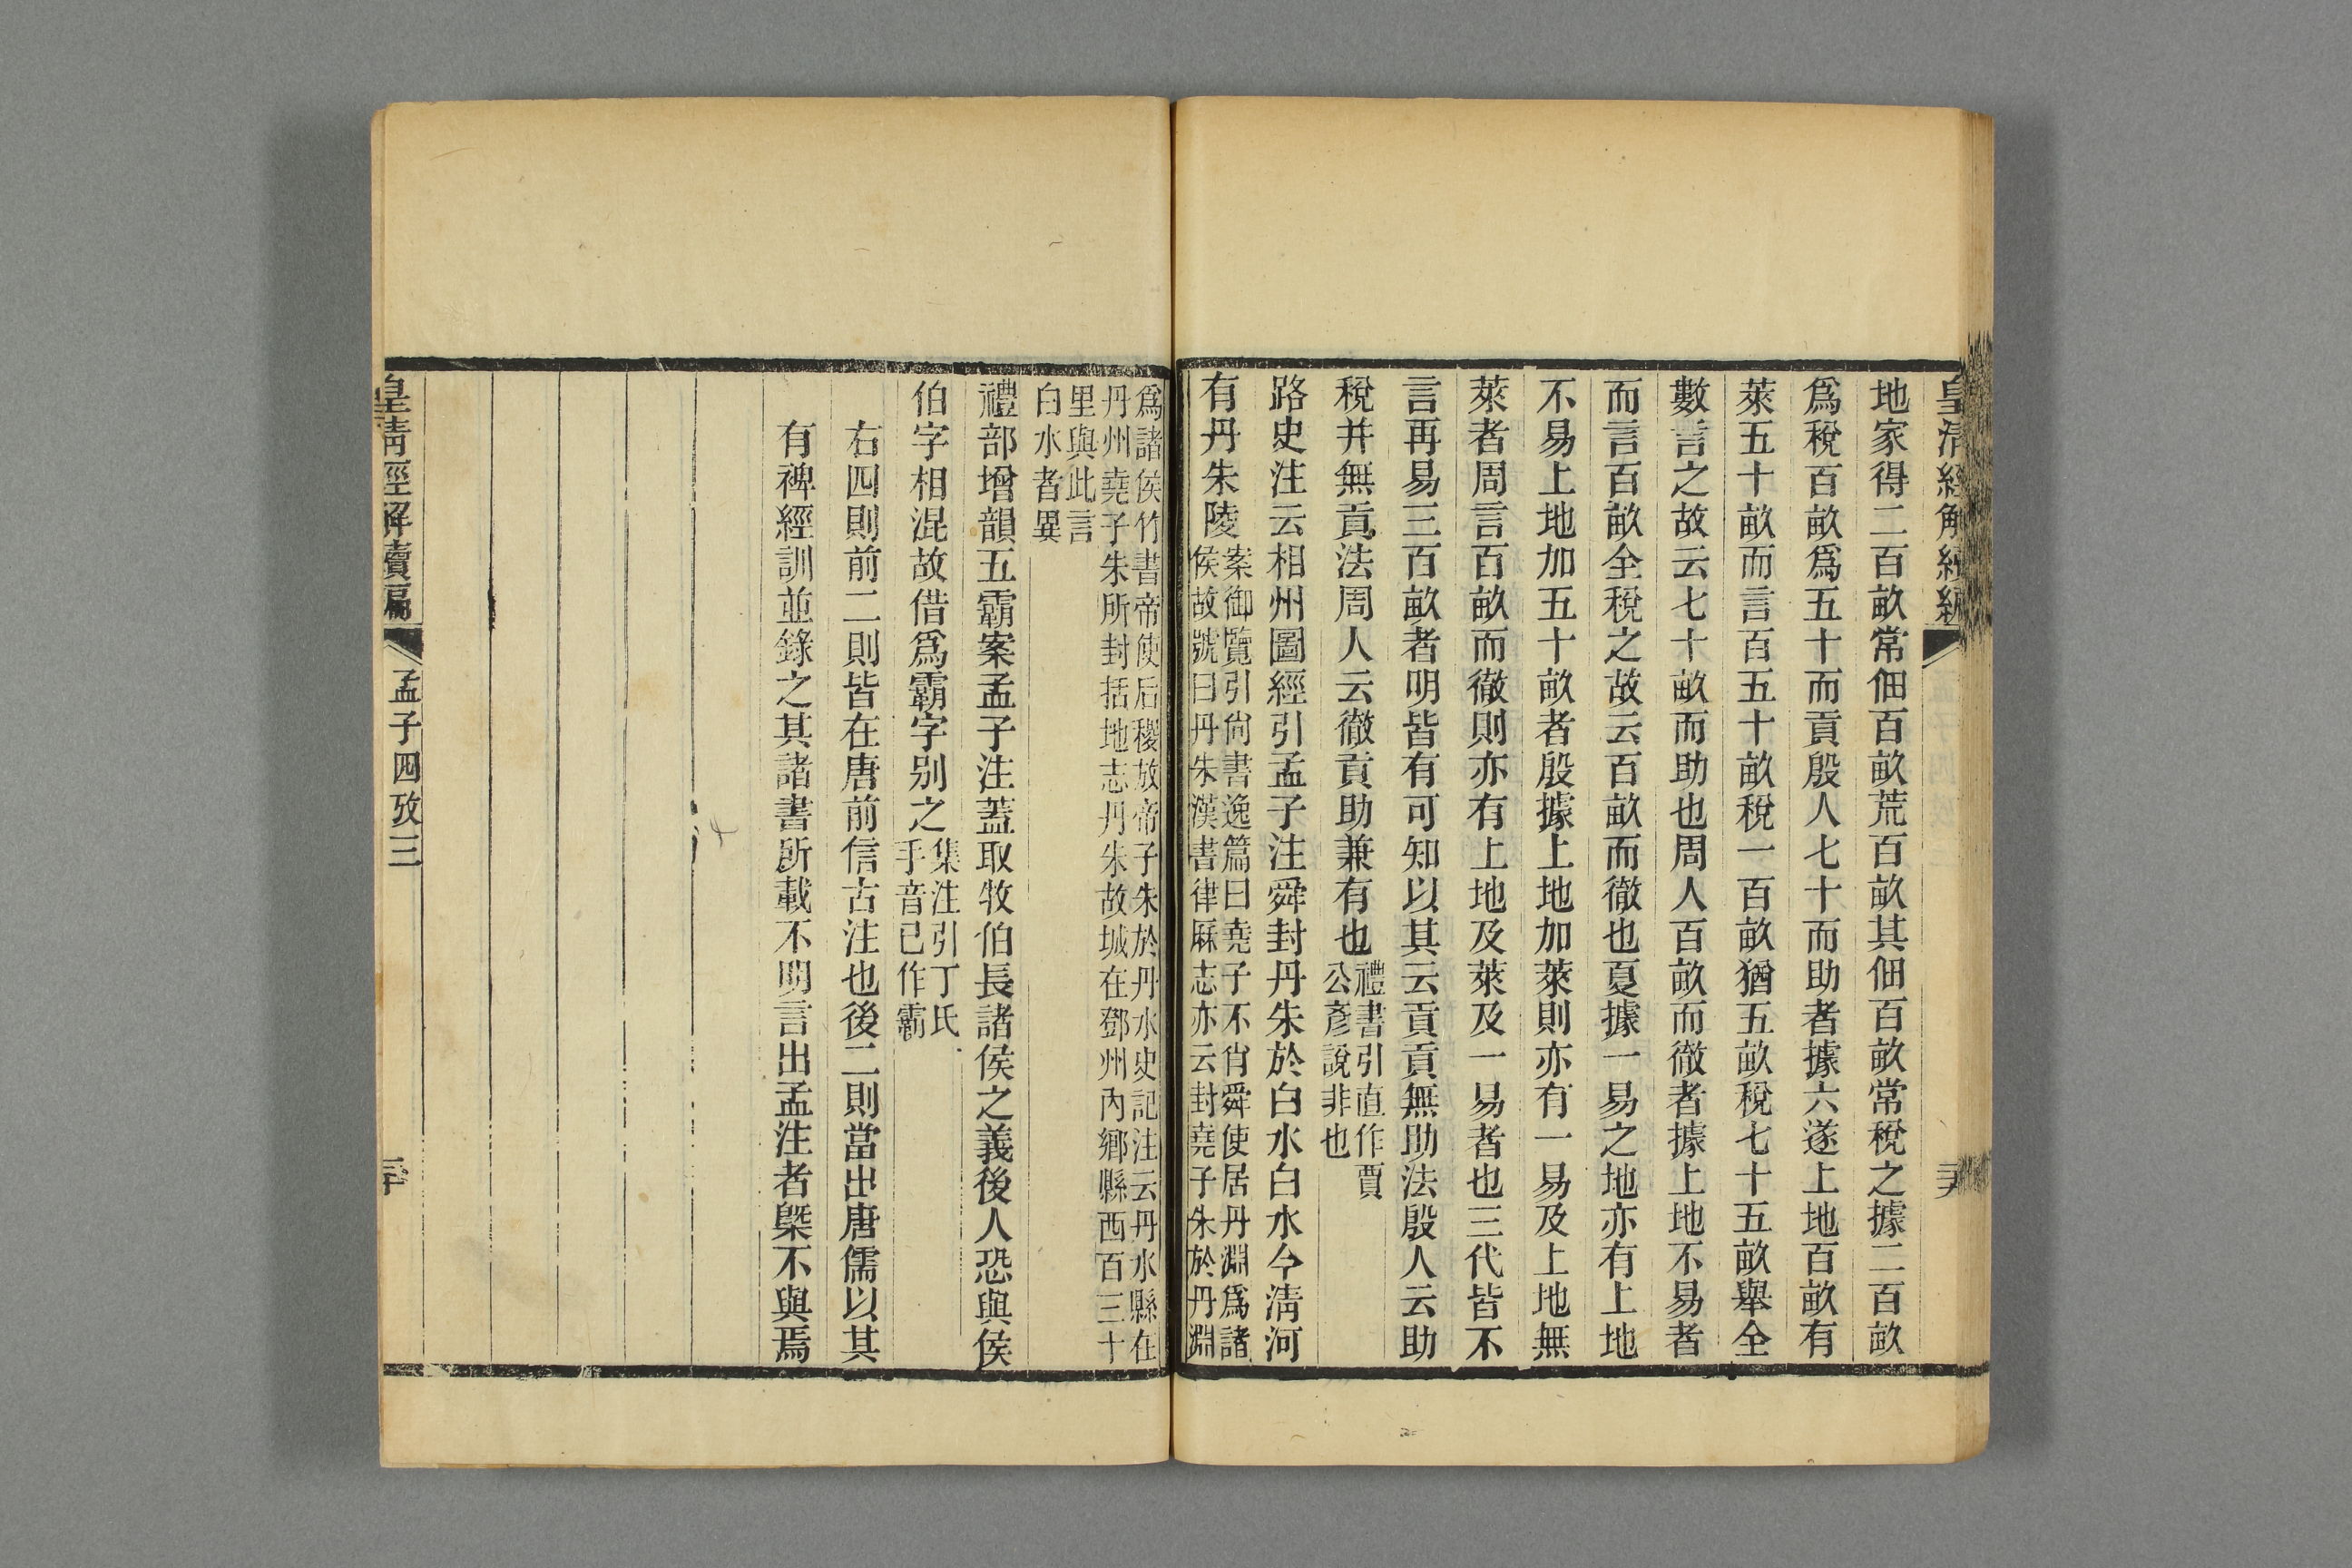 皇清經解續編
地家得二百畝常佃百畝荒百畝其佃百畝常稅之據二百畝
爲稅百畝爲五十而貢殷人七十而助者據六遂上地百畝有
萊五十畝而言百五十畝稅一百畝猶五畝稅七十五畝舉全
數言之故云七十畝而助也周人百畝而徹者據上地不易者
而言百畝全稅之故云百畝而徹也夏據一易之地亦有上地
不易上地加五十畝者殷據上地加萊則亦有一易及上地無
萊者周言百畝而徹則亦有上地及萊及一易者也三代皆不
言再易三百畝者明皆有可知以其云貢貢無助法殷人云助
稅并無貢法周人云徹貢助兼有也禮書引直作賈
公彥說非也
路史注云相州圖經引孟子注舜封丹朱於白水白水今淸河
有丹朱陵案御覽引尙書逸篇曰堯子不肖舜使居丹淵爲諸
侯故號曰丹朱漢書律厤志亦云封堯子朱於丹淵
爲諸侯竹書帝使后稷放帝子朱於丹水史記注云丹水縣在
丹州堯子朱所封括地志丹朱故城在鄧州內鄉縣西百三十
里與此言
白水者異
禮部增韻五霸案孟子注蓋取牧伯長諸侯之義後人恐與侯
伯字相混故借爲霸字别之集注引丁氏
手音已作霸
右四則前二則皆在唐前信古注也後二則當出唐儒以其
有裨經訓並錄之其諸書所載不明言出孟注者槩不與焉
皇淸經解續編
孟子四攷三